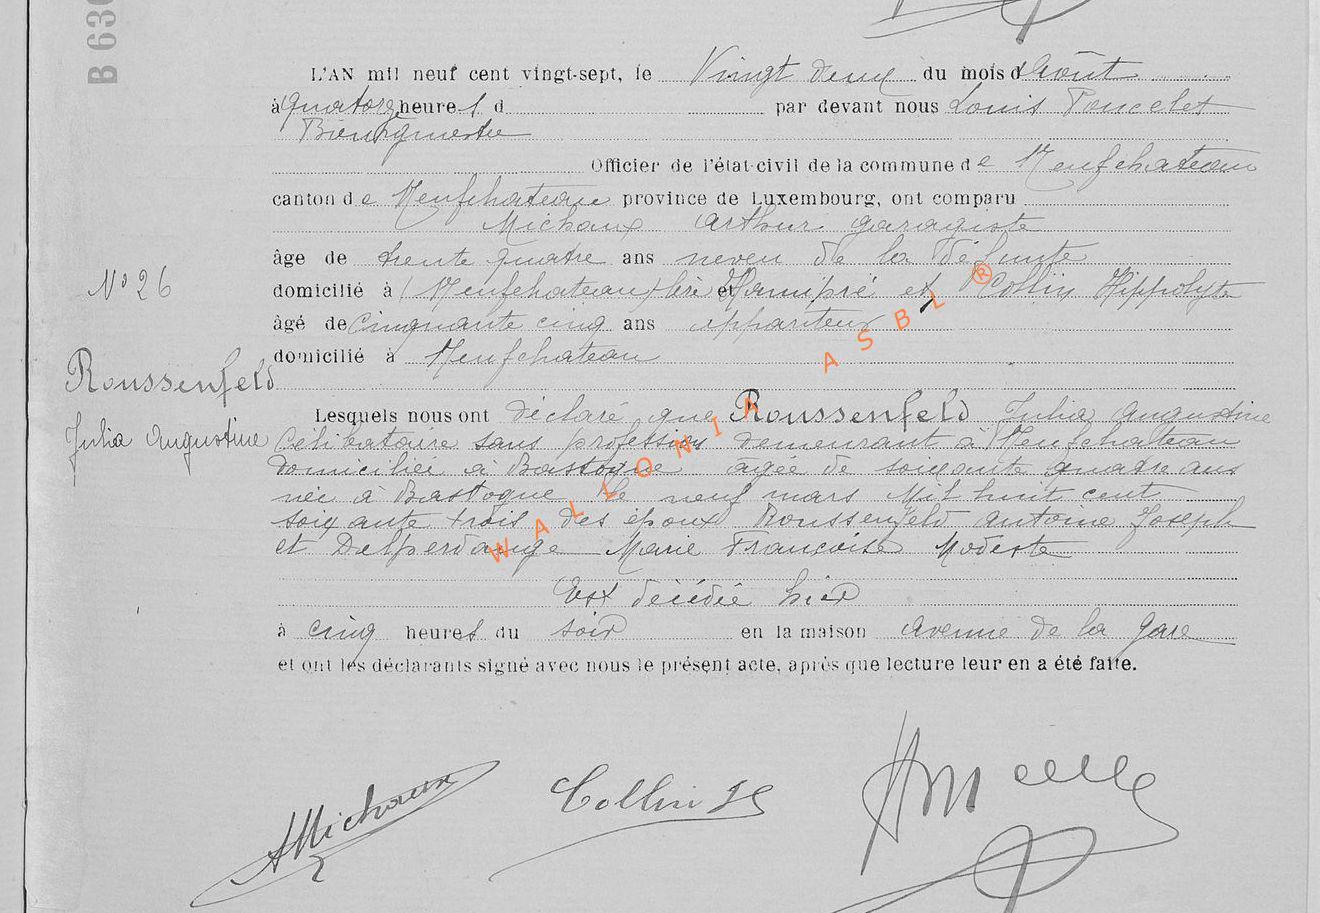 B 630
L'AN mil neuf cent vingt-sept, le Vingt deux du mois d'Août
à quatorze heures d par devant nous Louis Poncelet
Bourgmestre
Officier de l'état-civil de la commune de Neufchateau
canton de Neufchateau province de Luxembourg, ont comparu
Michaux Arthur garagiste
âge de trente quatre ans neveu de la défunte
N° 26
domicilié à Neufchateau et Collin Hippolyte
âgé de cinquante cinq ans appariteur
domicilié à Neufchateau
Roussenfeld
Julia Augustine
Lesquels nous ont déclaré que Roussenfeld Julia Augustine
Célibataire sans profession demeurant à Neufchateau
domiciliée à Bastogne agée de soixante quatre ans
née à Bastogne le neuf mars Mil huit cent
soixante trois des époux Roussenfeld Antoine Joseph
et Delperdange Marie Françoise Modeste
Est décédée hier
à cinq heures du soir en la maison Avenue de la Gare
et ont les déclarants signé avec nous le présent acte, après que lecture leur en a été faite.
WALLONIA ASBL ®
AMichaux
Collin